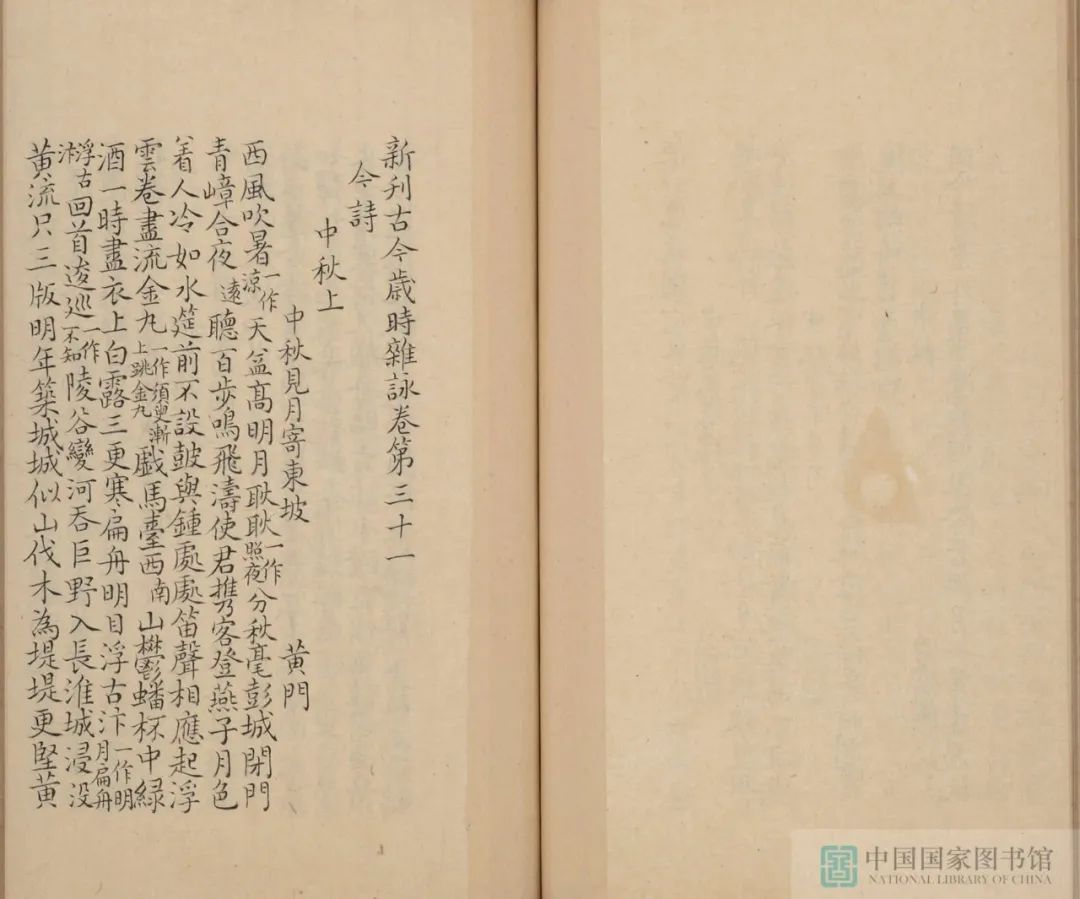 新刋古今歲時雜詠卷第三十一
今詩
中秋上
中秋見月寄東坡 黃門
西風吹暑一作涼天益髙明月耿耿一作照夜分秋毫彭城閉門
青嶂合夜遠聽百步鳴飛濤使君攜客登燕子月色
着人冷如水筵前不設鼓與鍾處處笛聲相應起浮
雲卷盡流金丸一作須臾漸上跳金丸戲馬臺西南山鬱蟠杯中緑
酒一時盡衣上白露三更寒扁舟明日浮古汴一作明月扁舟
浮古汴回首逡巡一作不知陵谷變河吞巨野入長淮城浸没
黃流只三版明年築城城似山伐木為堤堤更堅黃
中国国家图书馆
NATIONAL LIBRARY OF CHINA